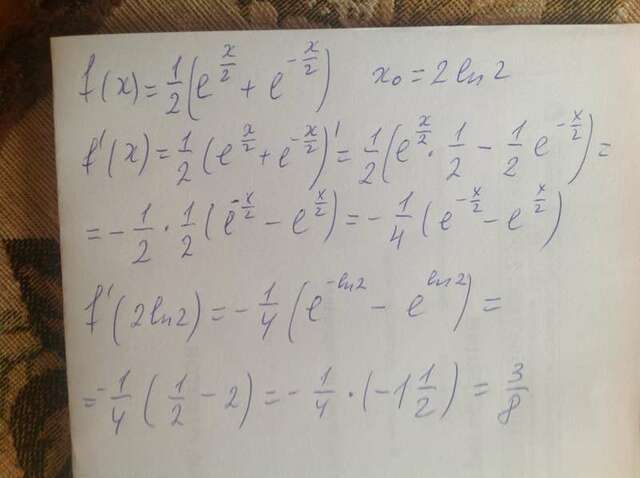 f(x) = 1/2 (e^(x/2) + e^(-x/2))   x₀ = 2ln2
f'(x) = 1/2 (e^(x/2) + e^(-x/2))' = 1/2 (e^(x/2) · 1/2 - 1/2 e^(-x/2)) =
= - 1/2 · 1/2 (e^(-x/2) - e^(x/2)) = - 1/4 (e^(-x/2) - e^(x/2))
f'(2ln2) = - 1/4 (e^(-ln2) - e^(ln2)) =
= - 1/4 (1/2 - 2) = - 1/4 · (-1 1/2) = 3/8